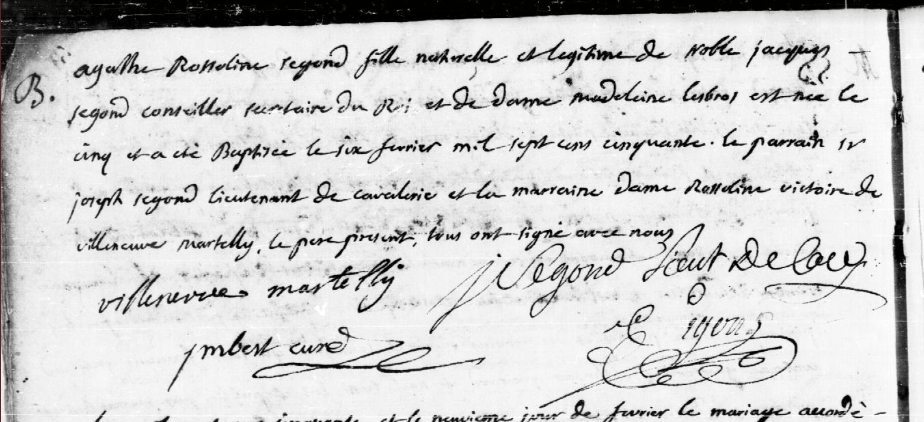 B.
agathe Rosseline segond fille naturelle et legitime de noble jacques
segond conseiller secretaire du Roi et de dame madeleine lesbros est née le
cinq et a eté Baptisée le six fevrier mil sept cens cinquante. le parrain sr
joseph segond lieutenant de cavalerie et la marraine dame Rosseline victoire de
villeneuve martelly, le pere present, tous ont signé avec nous
villeneuve martelly j Segond Lieut De Cav
Segond
jmbert curé
et le neuvieme jour de fevrier le mariage accordé -